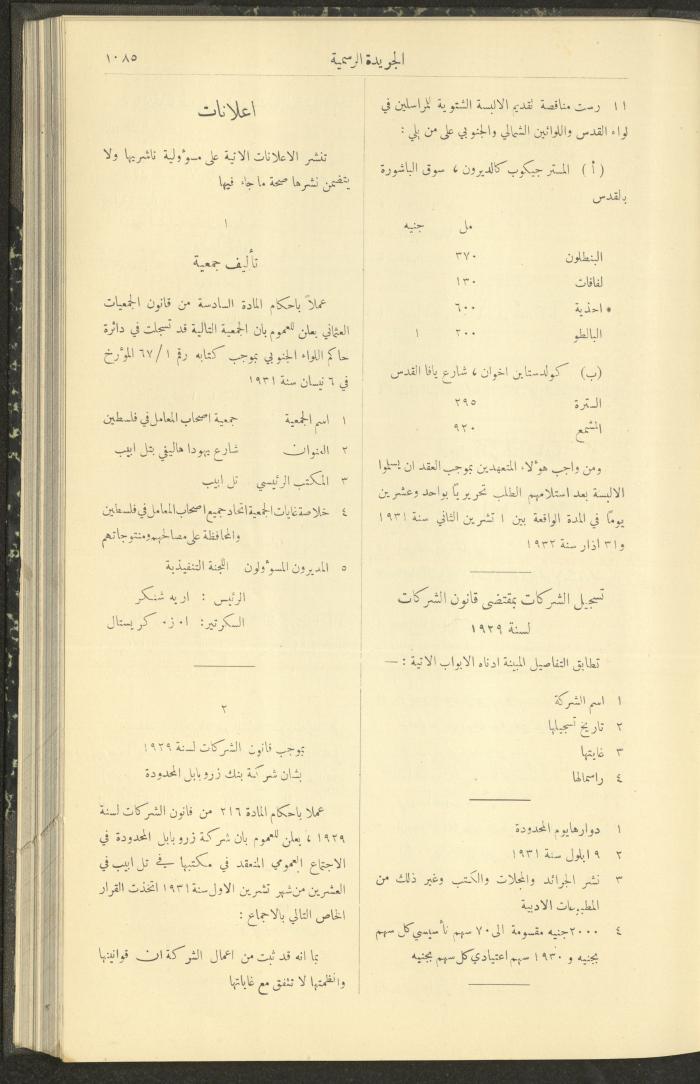 الجريدة الرسمية
١٠٨٥
١١ رست مناقصة تقديم الالبسة الشتوية للمراسلين في
لواء القدس واللوائين الشمالي والجنوبي على من يلي :
( أ ) المستر جيكوب كالديرون ، سوق الباشورة
بالقدس
مل جنيه
البنطلون ٣٧٠
لفافات ١٣٠
احذية ٦٠٠
البالطو ٢٠٠ ١
(ب) كولدستاين اخوان ، شارع يافا القدس
السترة ٢٩٥
المشمع ٩٢٠
ومن واجب هؤلاء المتعهدين بموجب العقد ان يسلموا
الالبسة بعد استلامهم الطلب تحريريًا بواحد وعشرين
يومًا في المدة الواقعة بين ١ تشرين الثاني سنة ١٩٣١
و٣١ اذار سنة ١٩٣٢
تسجيل الشركات بمقتضى قانون الشركات
لسنة ١٩٢٩
تطابق التفاصيل المبينة ادناه الابواب الاتية : —
١ اسم الشركة
٢ تاريخ تسجيلها
٣ غايتها
٤ راسمالها
١ دوارهايوم المحدودة
٢ ٩ ايلول سنة ١٩٣١
٣ نشر الجرائد والمجلات والكتب وغير ذلك من
المطبوعات الادبية
٤ ٢٠٠٠ جنيه مقسومة الى ٧٠ سهم تأسيسي كل سهم
بجنيه و ١٩٣٠ سهم اعتيادي كل سهم بجنيه
اعلانات
تنشر الاعلانات الاتية على مسؤولية ناشريها ولا
يتضمن نشرها صحة ما جاء فيها
١
تأليف جمعية
عملاً باحكام المادة السادسة من قانون الجمعيات
العثماني يعلن للعموم بان الجمعية التالية قد تسجلت في دائرة
حاكم اللواء الجنوبي بموجب كتابه رقم ٦٧/١ المؤرخ
في ٦ نيسان سنة ١٩٣١
١ اسم الجمعية جمعية اصحاب المعامل في فلسطين
٢ العنوان شارع يهودا هاليفي بتل ابيب
٣ المكتب الرئيسي تل ابيب
٤ خلاصة غايات الجمعية اتحاد جميع اصحاب المعامل في فلسطين
والمحافظة على مصالحهم ومنتوجاتهم
٥ المديرون المسؤولون اللجنة التنفيذية
الرئيس : اريه شنكر
السكرتير: ا٠ز٠ كريستال
٢
بموجب قانون الشركات لسنة ١٩٢٩
بشان شركة بنك زروبابل المحدودة
عملا باحكام المادة ٢١٦ من قانون الشركات لسنة
١٩٢٩ ، يعلن للعموم بان شركة زروبابل المحدودة في
الاجتماع العمومي المنعقد في مكتبها في تل ابيب في
العشرين من شهر تشرين الاول سنة ١٩٣١ اتخذت القرار
الخاص التالي بالاجماع :
بما انه قد ثبت من اعمال الشركة ان قوانينها
وانظمتها لا تتفق مع غاياتها